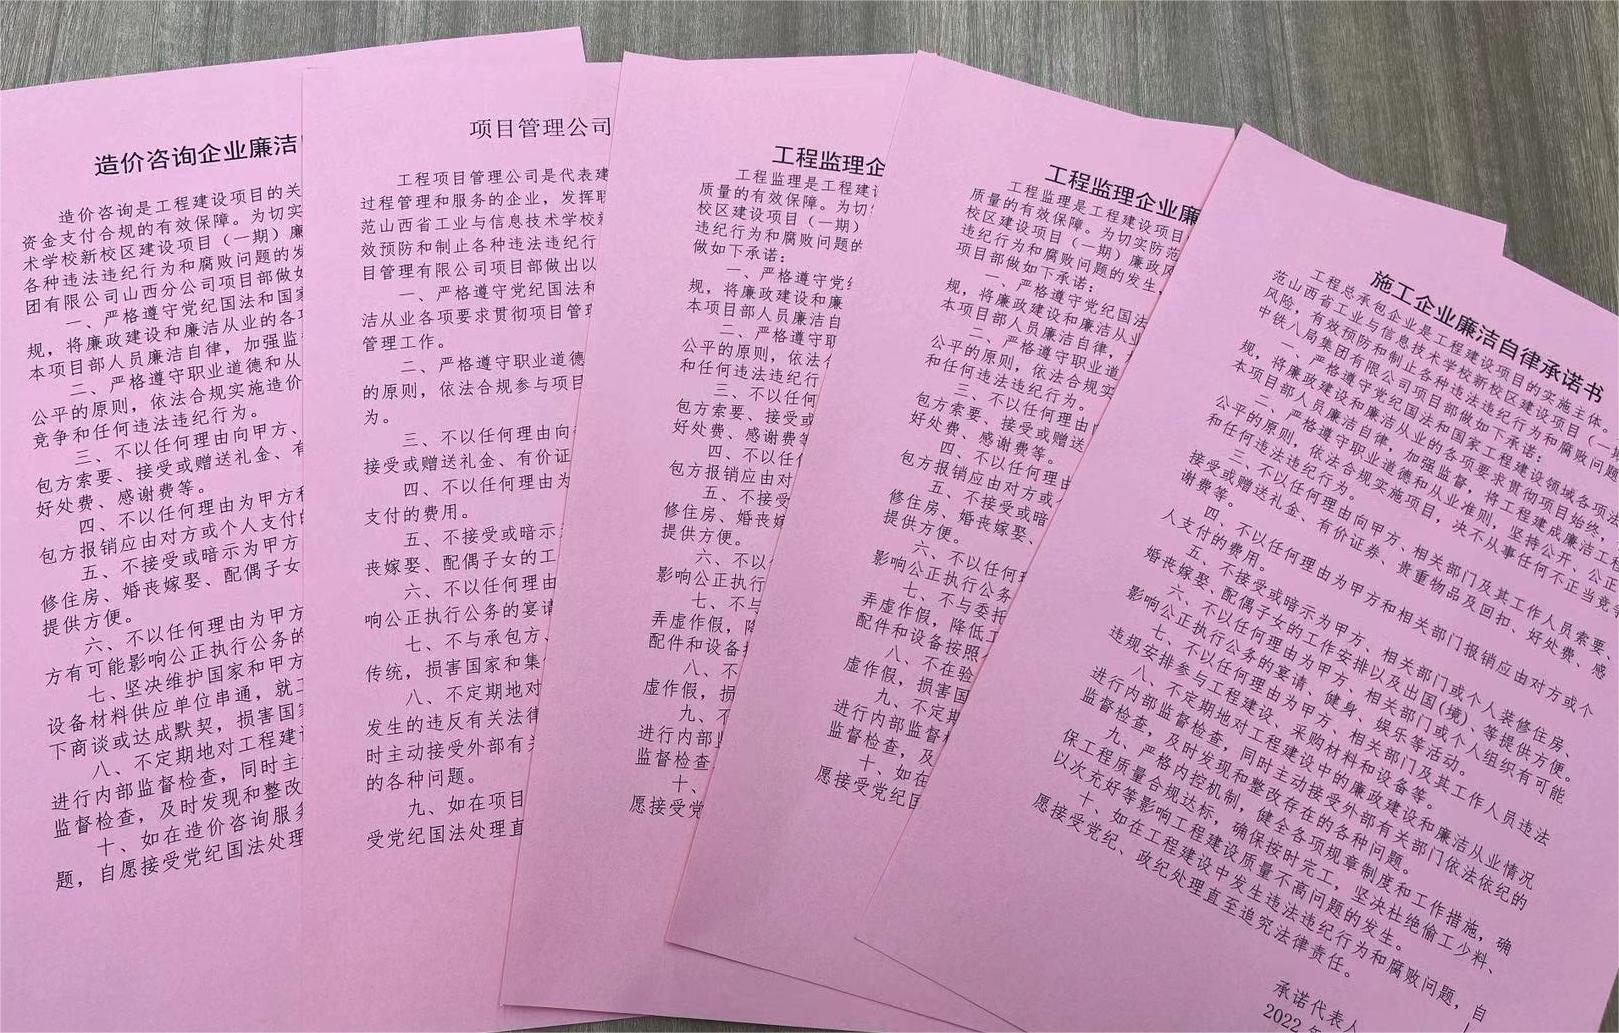 造价咨询企业廉洁
造价咨询是工程建设项目的关
资金支付合规的有效保障。为切实
术学校新校区建设项目（一期）廉
各种违法违纪行为和腐败问题的发
团有限公司山西分公司项目部做如
一、严格遵守党纪国法和国家
规，将廉政建设和廉洁从业的各项
本项目部人员廉洁自律，加强监
二、严格遵守职业道德和从
公平的原则，依法合规实施造价
竞争和任何违法违纪行为。
三、不以任何理由向甲方、
包方索要、接受或赠送礼金、有
好处费、感谢费等。
四、不以任何理由为甲方和
包方报销应由对方或个人支付的
五、不接受或暗示为甲方
修住房、婚丧嫁娶、配偶子女
提供方便。
六、不以任何理由为甲方
方有可能影响公正执行公务的
七、坚决维护国家和甲方
设备材料供应单位串通，就工
下商谈或达成默契，损害国家
八、不定期地对工程建设
进行内部监督检查，同时主
监督检查，及时发现和整改
十、如在造价咨询服务
题，自愿接受党纪国法处理
项目管理公司
工程项目管理公司是代表建
过程管理和服务的企业，发挥联
范山西省工业与信息技术学校新
效预防和制止各种违法违纪行
目管理有限公司项目部做出以
一、严格遵守党纪国法和
洁从业各项要求贯彻项目管理
管理工作。
二、严格遵守职业道德
的原则，依法合规参与项目
为。
三、不以任何理由向
接受或赠送礼金、有价证
四、不以任何理由为
支付的费用。
五、不接受或暗示
丧嫁娶、配偶子女的工
六、不以任何理由
响公正执行公务的宴请
七、不与承包方、
传统，损害国家和集体
八、不定期地对
发生的违反有关法律
时主动接受外部有关
的各种问题。
九、如在项目
受党纪国法处理直
工程监理企
工程监理是工程建设
质量的有效保障。为切
校区建设项目（一期）
违纪行为和腐败问题的
做如下承诺：
一、严格遵守党纪
规，将廉政建设和廉
本项目部人员廉洁自
二、严格遵守职
公平的原则，依法合
和任何违法违纪行
三、不以任何
包方索要、接受或
好处费、感谢费等
四、不以任何
包方报销应由对
五、不接受
修住房、婚丧嫁
提供方便。
六、不以
影响公正执行
七、不与
弄虚作假，降
配件和设备按
八、不
虚作假，损
九、不
进行内部监
监督检查
十、
愿接受党
工程监理企业廉
工程监理是工程建设项目
质量的有效保障。为切实防范
校区建设项目（一期）廉政风
违纪行为和腐败问题的发生，
项目部做如下承诺：
一、严格遵守党纪国法
规，将廉政建设和廉洁从业
本项目部人员廉洁自律，加
二、严格遵守职业道
公平的原则，依法合规实
和任何违法违纪行为。
三、不以任何理由向
包方索要、接受或赠送
好处费、感谢费等。
四、不以任何理由
包方报销应由对方或
五、不接受或暗
修住房、婚丧嫁娶、
提供方便。
六、不以任何理
影响公正执行公务
七、不与委托
弄虚作假，降低工
配件和设备按照
八、不在验
虚作假，损害国
九、不定期
进行内部监督检
监督检查，及
十、如在
愿接受党纪国
施工企业廉洁自律承诺书
工程总承包企业是工程建设项目的实施主体。
范山西省工业与信息技术学校新校区建设项目（一期
风险，有效预防和制止各种违法违纪行为和腐败问题
中铁八局集团有限公司项目部做如下承诺：
一、严格遵守党纪国法和国家工程建设领域各项法
规，将廉政建设和廉洁从业的各项要求贯彻项目始终，
本项目部人员廉洁自律，加强监督，将工程建成廉洁工程
二、严格遵守职业道德和从业准则，坚持公开、公正
公平的原则，依法合规实施项目，决不从事任何不正当竞争
和任何违法违纪行为。
三、不以任何理由向甲方、相关部门及其工作人员索要、
接受或赠送礼金、有价证券、贵重物品及回扣、好处费、感
谢费等。
四、不以任何理由为甲方和相关部门报销应由对方或个
人支付的费用。
五、不接受或暗示为甲方、相关部门或个人装修住房、
婚丧嫁娶、配偶子女的工作安排以及出国(境)、等提供方便。
六、不以任何理由为甲方、相关部门或个人组织有可能
影响公正执行公务的宴请、健身、娱乐等活动。
七、不以任何理由为甲方、相关部门及其工作人员违法
违规安排参与工程建设、采购材料和设备等。
八、不定期地对工程建设中的廉政建设和廉洁从业情况
进行内部监督检查，同时主动接受外部有关部门依法依纪的
监督检查，及时发现和整改存在的各种问题。
九、严格内控机制，健全各项规章制度和工作措施，确
保工程质量合规达标，确保按时完工，坚决杜绝偷工少料、
以次充好等影响工程建设质量不高问题的发生。
十、如在工程建设中发生违法违纪行为和腐败问题，自
愿接受党纪、政纪处理直至追究法律责任。
承诺代表人
2022